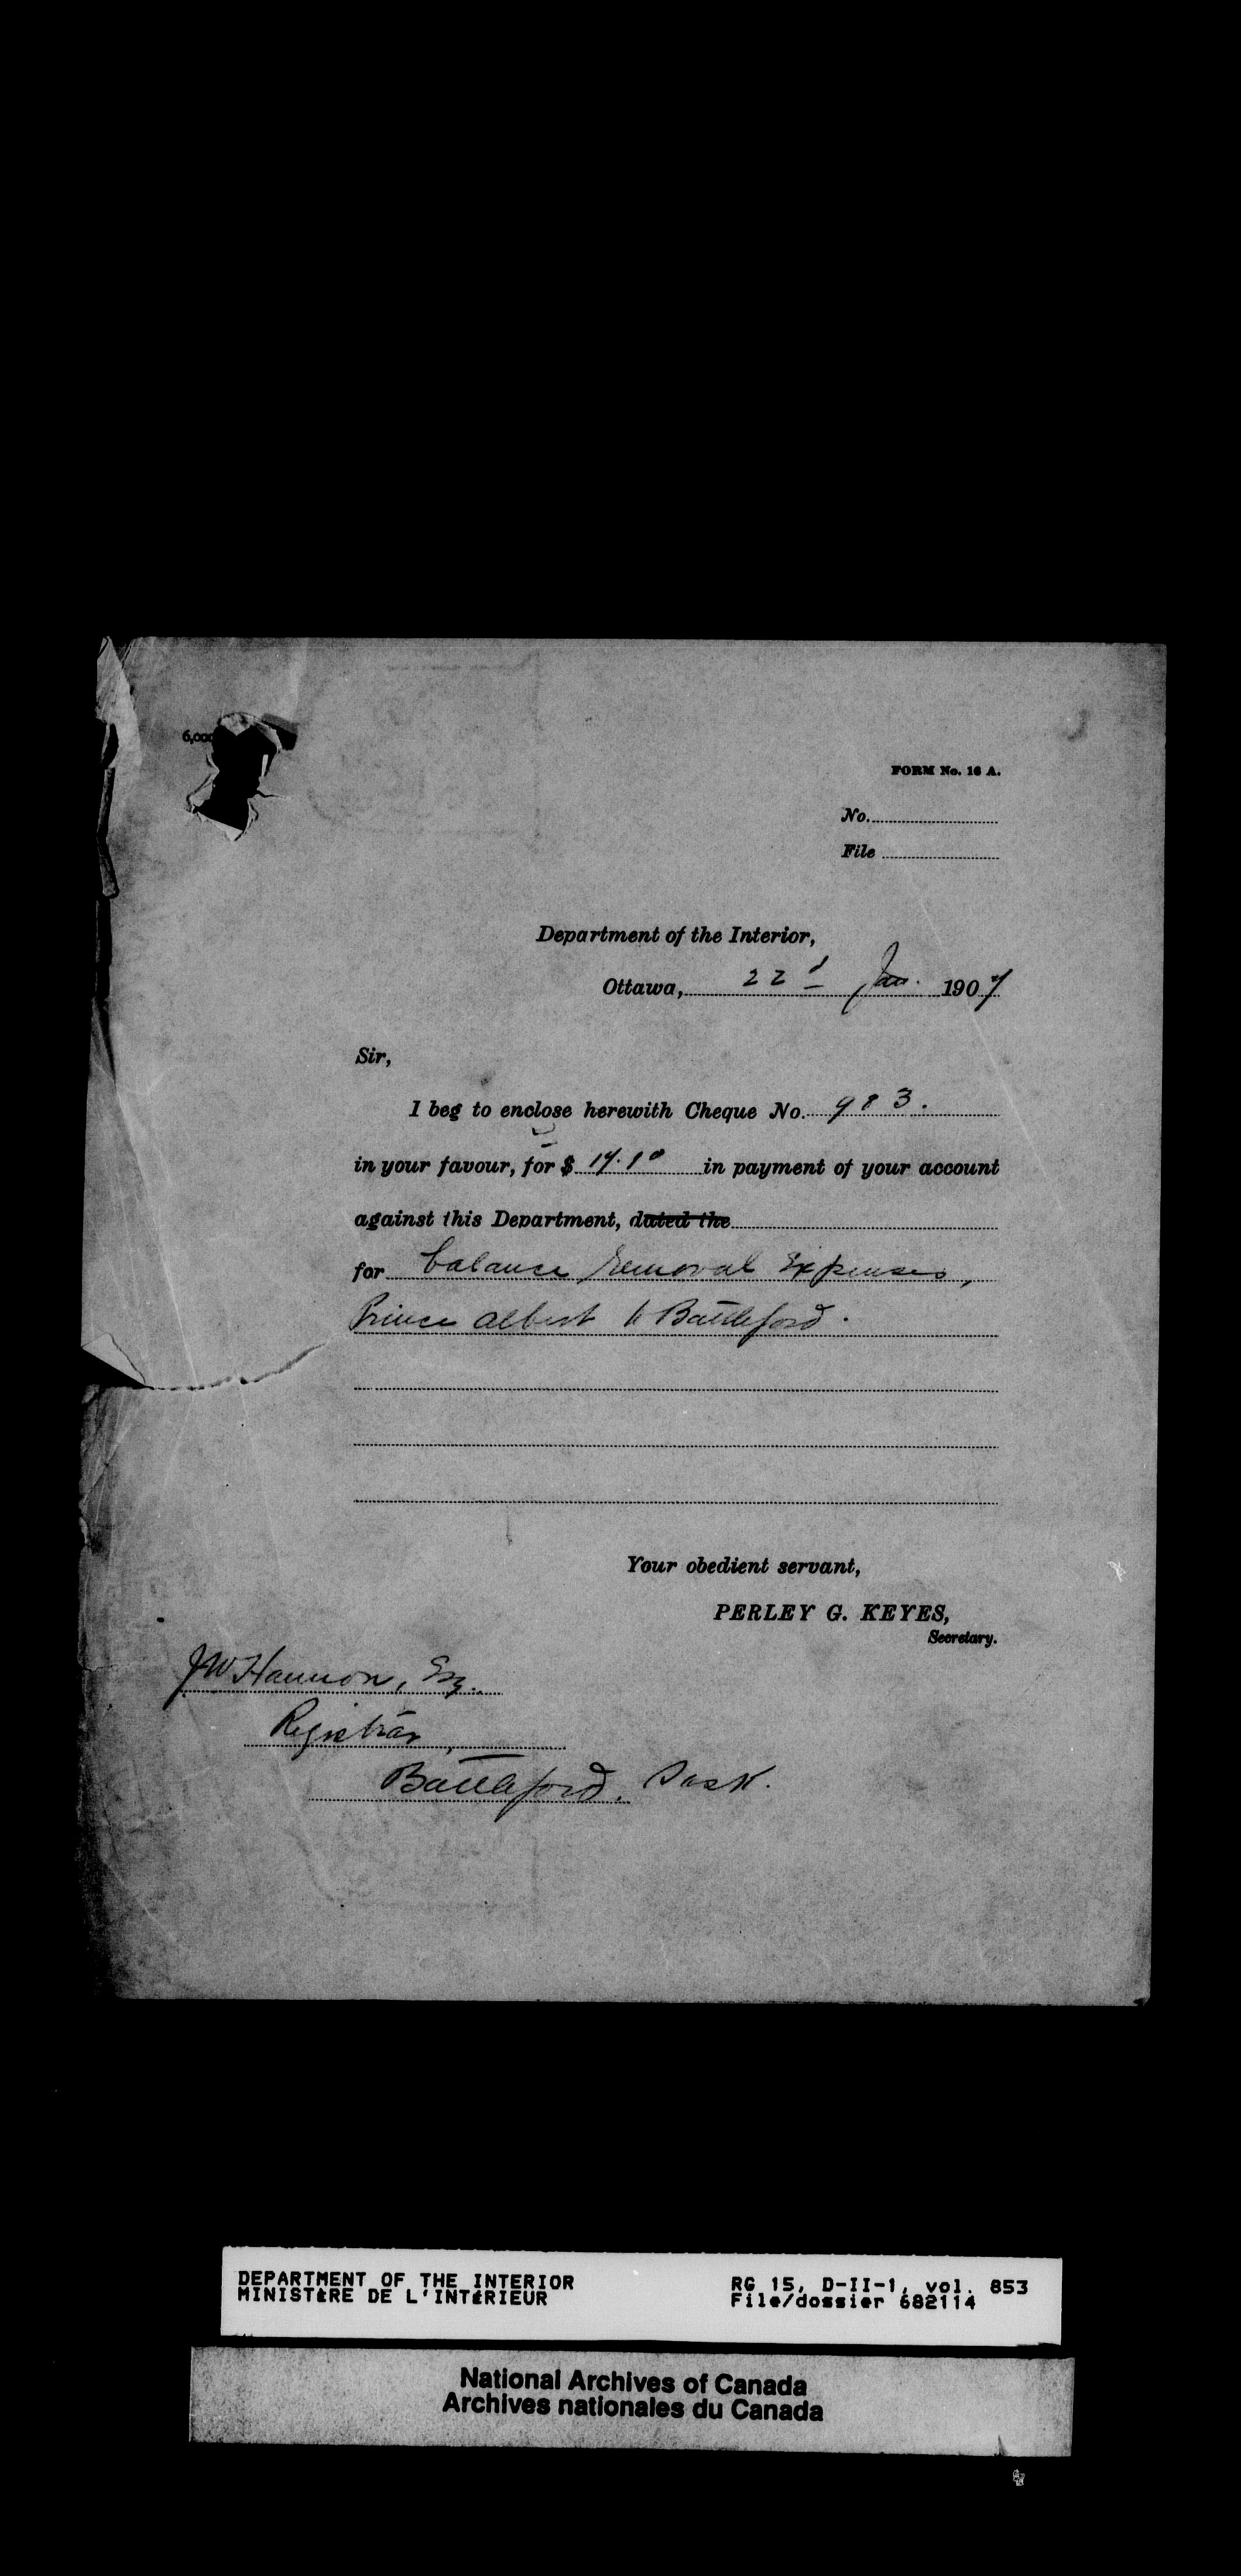 6,000
FORM No. 16 A.
No.
File
Department of the Interior,
Ottawa, 22d Jan. 1907
Sir,
I beg to enclose herewith Cheque No. 983.
in your favour, for $ in payment of your account
against this Department, dated the
for balance removal Expenses,
Prince Albert to Battleford.
Your obedient servant,
PERLEY G. KEYES,
Secretary.
JW Hannon, Esq.
Registrar,
Battleford, Sask.
DEPARTMENT OF THE INTERIOR
MINISTÈRE DE L'INTÉRIEUR
RG 15, D-II-1, vol. 853
File/dossier 682114
National Archives of Canada
Archives nationales du Canada